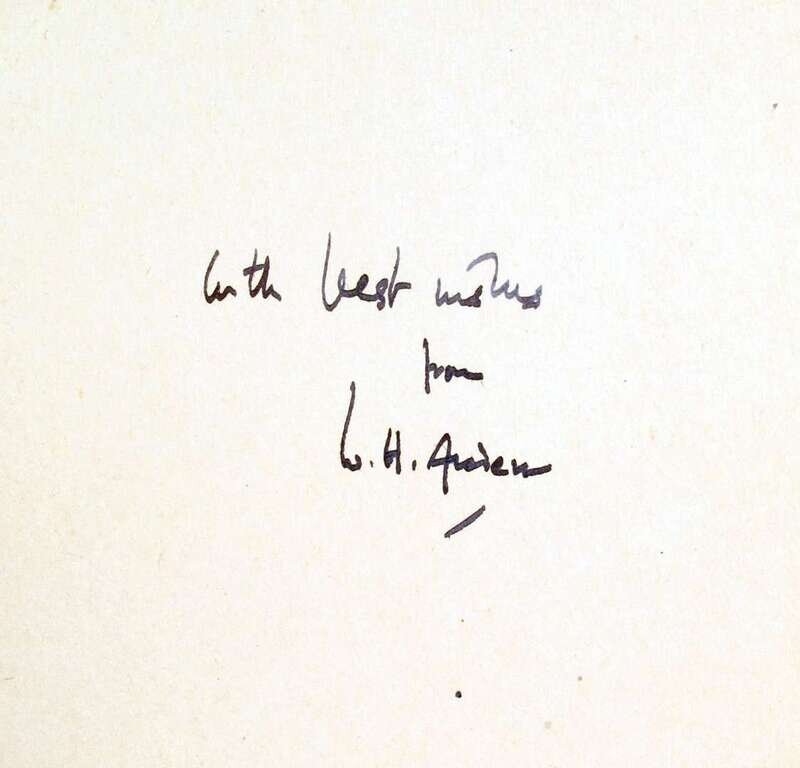 with best wishes
from
W. H. Auden